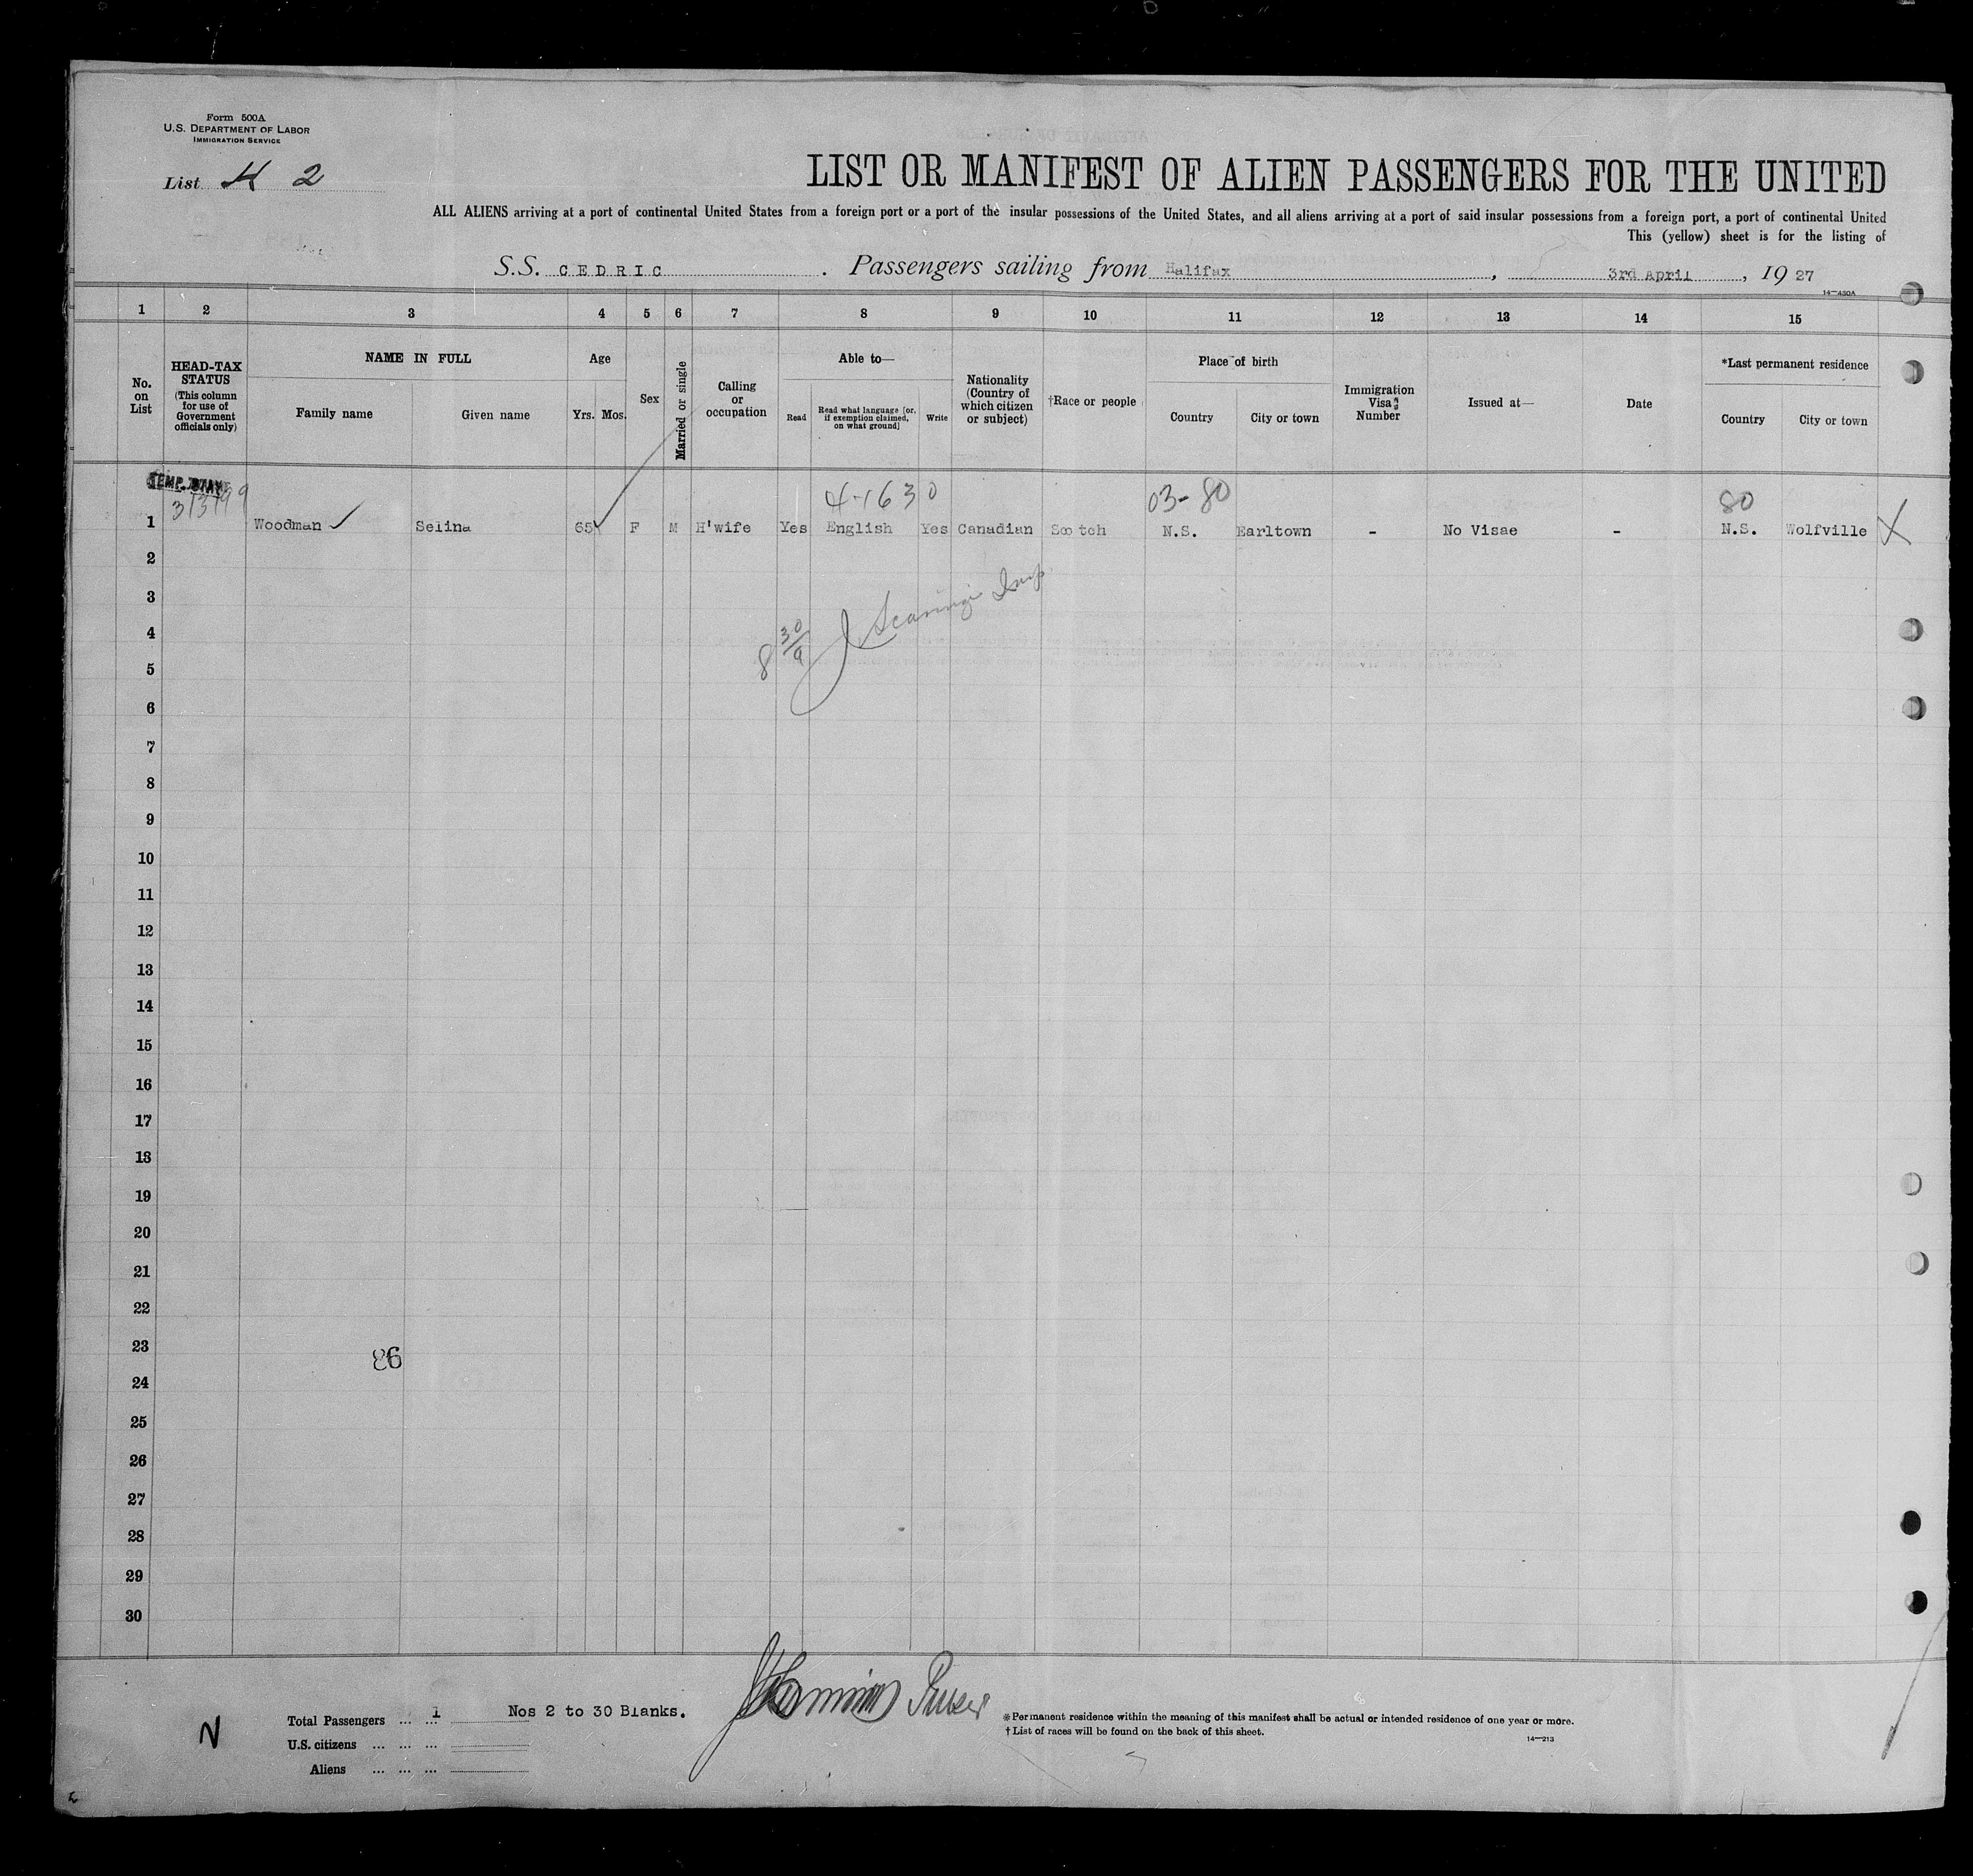 Form 500A
U.S. DEPARTMENT OF LABOR
IMMIGRATION SERVICE
List 2
LIST OR MANIFEST OF ALIEN PASSENGERS FOR THE UNITED
ALL ALIENS arriving at a port of continental United States from a foreign port or a port of the insular possessions of the United States, and all aliens arriving at a port of said insular possessions from a foreign port, a port of continental United
This (yellow) sheet is for the listing of
S.S. CEDRIC . Passengers sailing from Halifax , 3rd April , 19 27
14—430A
1 2 3 4 5 6 7 8 9 10 11 12 13 14 15
No. on List
HEAD-TAX STATUS
(This column for use of Government officials only)
NAME IN FULL
Family name Given name
Age
Yrs. Mos.
Sex
Married or single
Calling or occupation
Able to—
Read
Read what language [or, if exemption claimed, on what ground]
Write
Nationality (Country of which citizen or subject)
†Race or people
Place of birth
Country City or town
Immigration Visa Number
Issued at—
Date
*Last permanent residence
Country City or town
TEMP. STAY
4-1630 03-80 80
1 Woodman Selina 65 F M H'wife Yes English Yes Canadian Scotch N.S. Earltown - No Visae - N.S. Wolfville X
2
3
4
5
6
7
8
9
10
11
12
13
14
15
16
17
18
19
20
21
22
23
86
24
25
26
27
28
29
30
Total Passengers ... ... 1 Nos 2 to 30 Blanks.
U.S. citizens ... ... ...
Aliens ... ... ...
N
*Permanent residence within the meaning of this manifest shall be actual or intended residence of one year or more.
†List of races will be found on the back of this sheet.
14—213